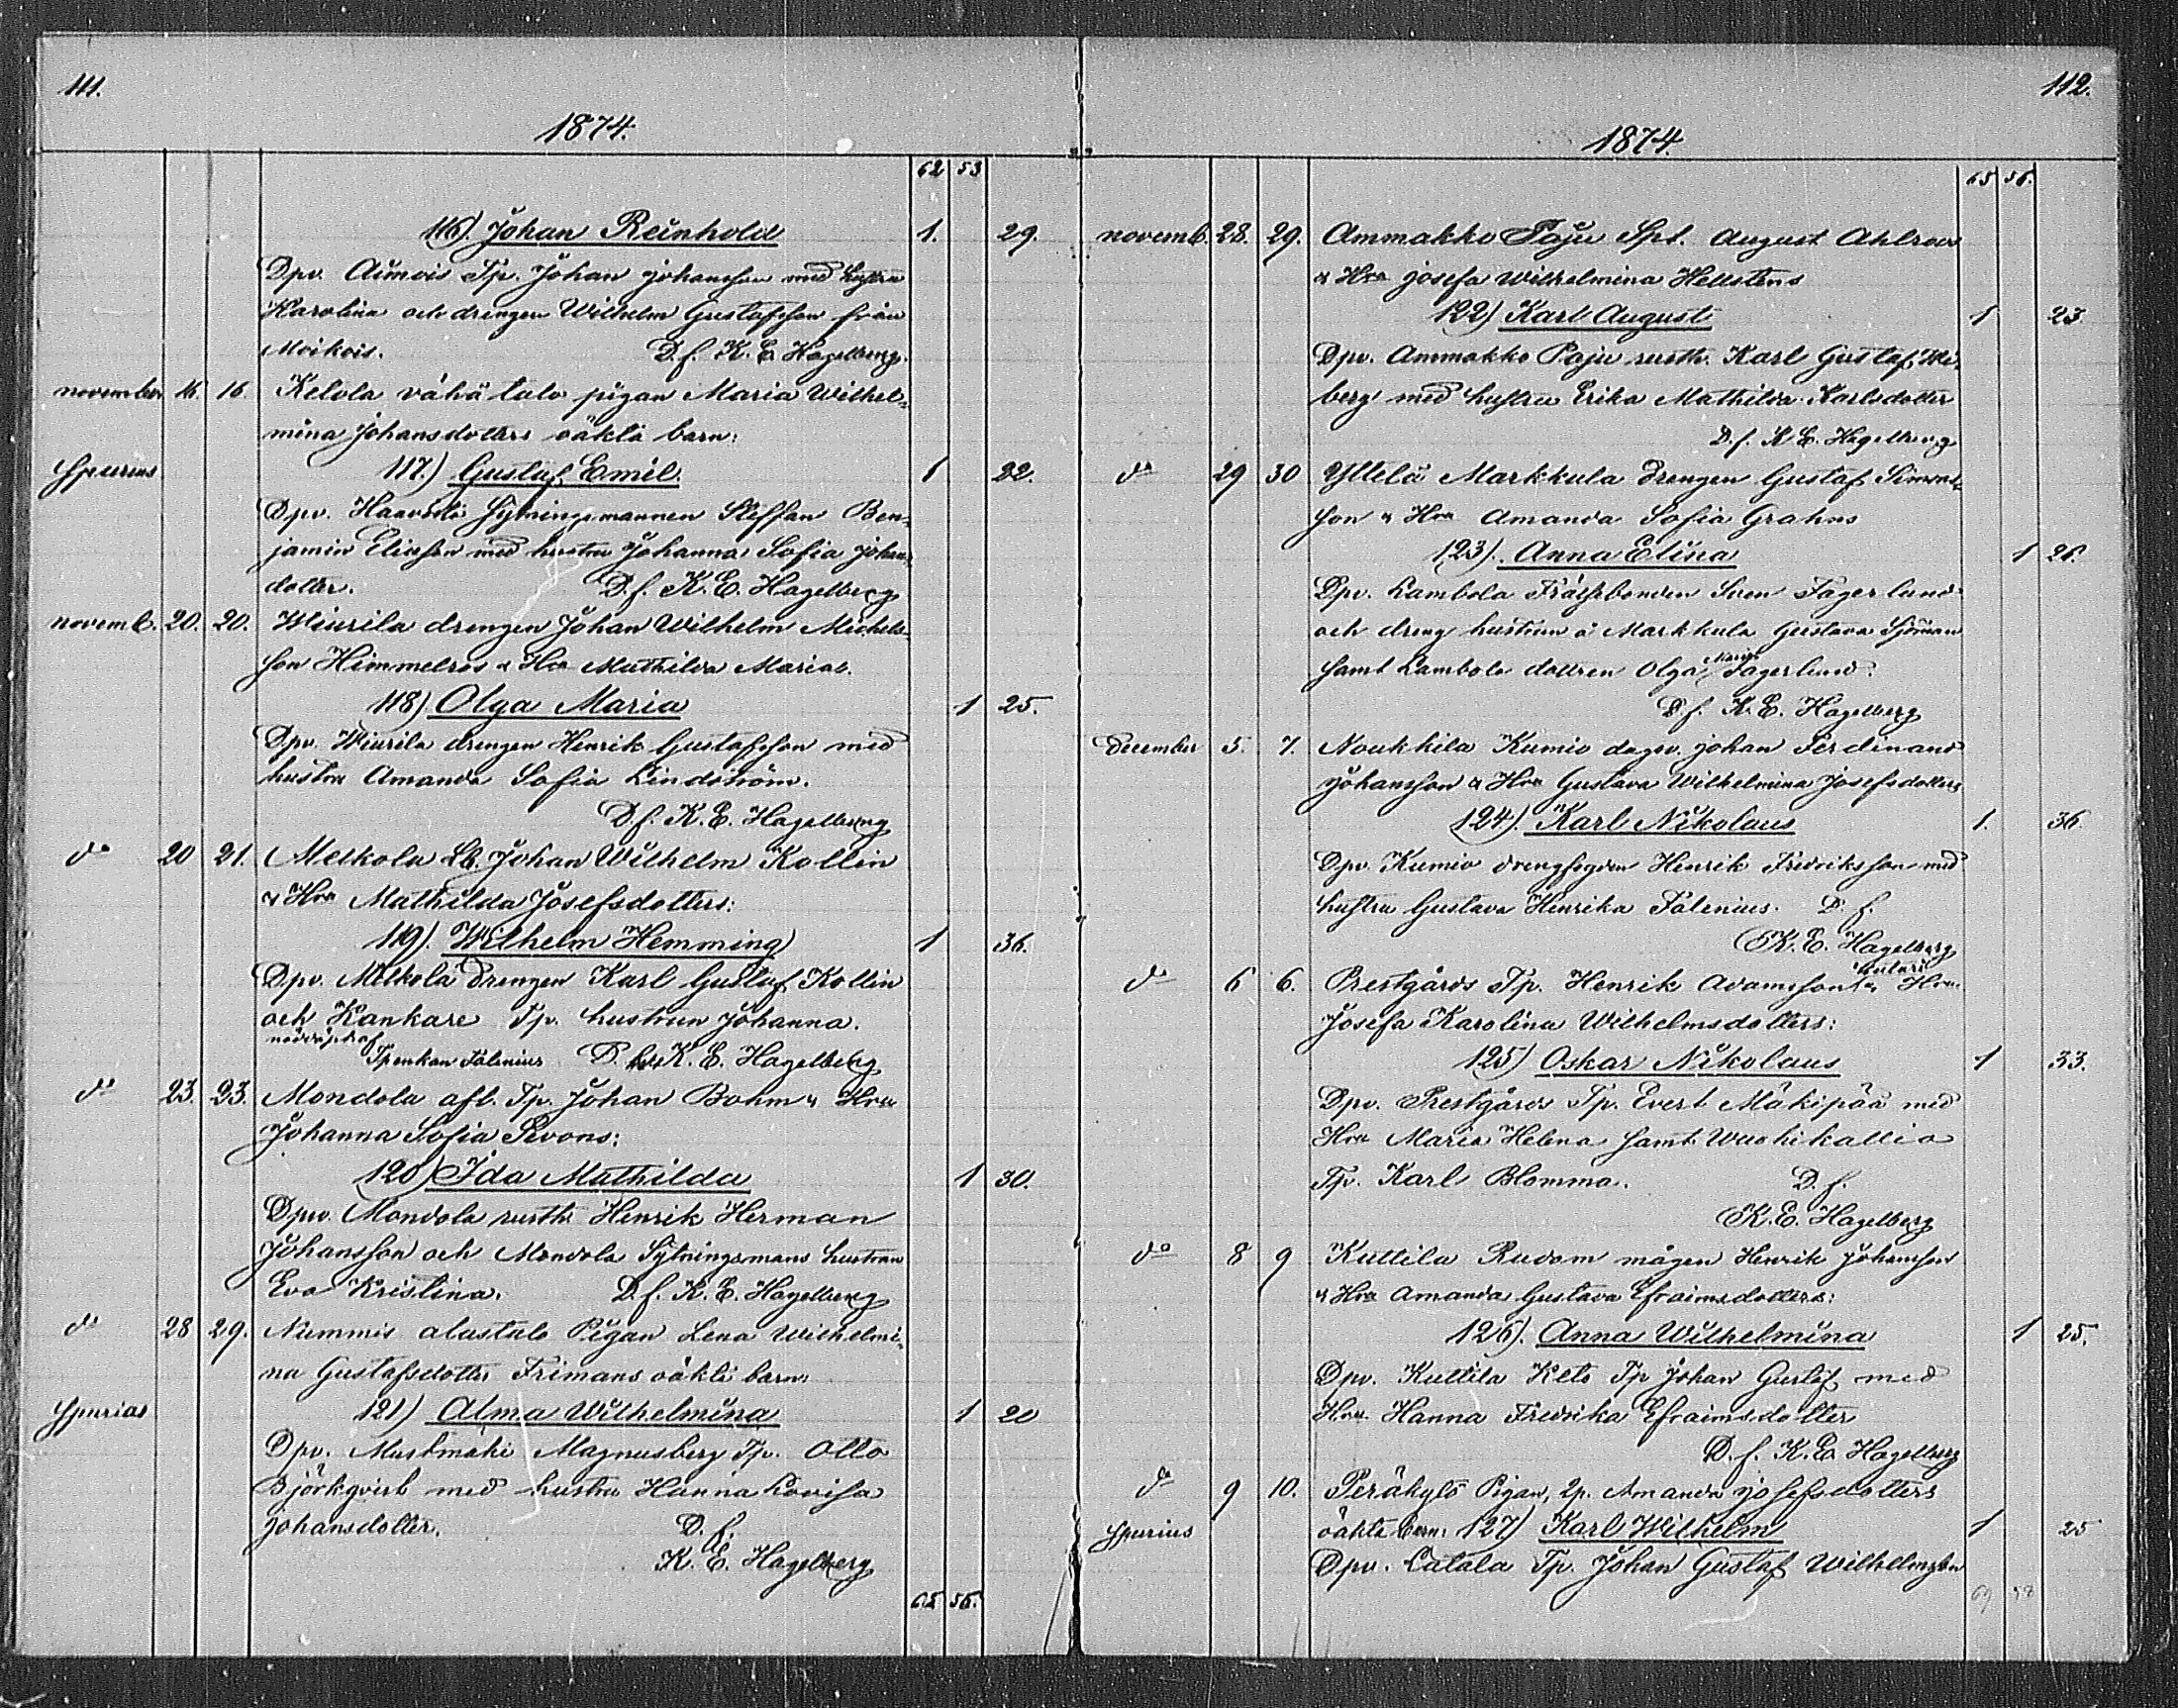 111.
1874.
62 53
116) Johan Reinhold 1. 29.
Dpv. Aimois Tp. Johan Johansson med hustru
Karolina och drengen Wilhelm Gustafsson från
Moikois. D.f. K. E. Hagelberg.
november 16. 16. Ketola vähä talo pigan Maria Wilhel-
mina Johansdotters oäkta barn:
Spurius 117.) Gustaf Emil. 1 22.
Dpv. Sytningsmannen Steffan Ben-
jamin Eliasson med hustru Johanna Sofia Johans-
dotter. D.f. K. E. Hagelberg
novemb. 20. 20. Wiurila drengen Johan Wilhelm Michels-
son Himmelros & Hru Mathilda Marias.
118) Olga Maria 1 25.
Dpv. Wiurila drengen Henrik Gustafsson med
hustru Amanda Sofia Lindström.
D.f. K. E. Hagelberg
do 20 21. Melkola Lb. Johan Wilhelm Kollin
& Hru Mathilda Josefsdotters:
119). Wilhelm Hemming 1 36.
Dpv. Melkola drengen Karl Gustaf Kollin
och Kankare Tp. hustrun Johanna.
nöddöpt af
Tpenkan Salenius D. K. E. Hagelberg
do 23. 23. Mondola afl. Tp. Johan Bohm & Hru
Johanna Sofia Sevons:
120) Ida Mathilda 1 30.
Dpv. Mondola rusth. Henrik Herman
Johansson och Mondola Sytningsmans hustrun
Eva Kristina. D.f. K. E. Hagelberg
do 28 29. Nummis alastalo Pigan Lena Wilhelmi-
na Gustafsdotter Frimans oäkta barn:
Spurias 121) Alma Wilhelmina 1 20
Dpv. Mustmäki Magnusberg Tp. Otto
Björkqvist med hustru Hanna Lovisa
Johansdotter. D.f.
K. E. Hagelberg
65 56.
112.
1874.
65 56.
novemb. 28. 29. Ammakko Paju Spt. August Ahlroos
& Hru Josefa Wilhelmina Hellstens
122) Karl August 1 23
Dpv. Ammakko Paju rusth. Karl Gustaf
berg med hustru Erika Mathilda Karlsdotter
D.f. K. E. Hagelberg
do 29 30 Yltelä Markkula drengen Gustaf Simons-
son & Hru Amanda Sofia Grahns
123). Anna Elina 1 26.
Dpv. Lambola Frälsebonden Sven Fagerlund
och dreng hustrun å Markkula Gustava Sjöman
samt Lambola dottren Olga Maria Fagerlund.
D.f. K. E. Hagelberg
December 5. 7. Noukkila Kumio dagsv. Johan Ferdinand
Johansson & Hru Gustava Wilhelmina Josefsdotters
124). Karl Nikolaus 1. 36
Dpv. Kumio drengfogden Henrik Fredriksson med
hustru Gustava Henrika Salenius. D.f.
K. E. Hagelberg
do 6 6. Prestgårds Tp. Henrik Adamsson & Hru
Josefa Karolina Wilhelmsdotters:
125) Oskar Nikolaus 1 33.
Dpv. Prestgårds Tp. Evert Mäkipää med
Hru Maria Helena samt Wuohikallio
Tp. Karl Blomma. D.f.
K. E. Hagelberg
do 8 9 Kuttila Rudom mågen Henrik Johansson
& Hru Amanda Gustava Efraimsdotters:
126). Anna Wilhelmina 1 25.
Dpv. Kuttila Keto Tp Johan Gustaf med
Hru Hanna Fredrika Efraimsdotter
D.f. K. E. Hagelberg
do 9 10. Peräkylä Pigan, Amanda Josefsdotters
Spurius oäkta barn: 127) Karl Wilhelm 1 25
Dpv. Tp. Johan Gustaf Wilhelmsson
69 58